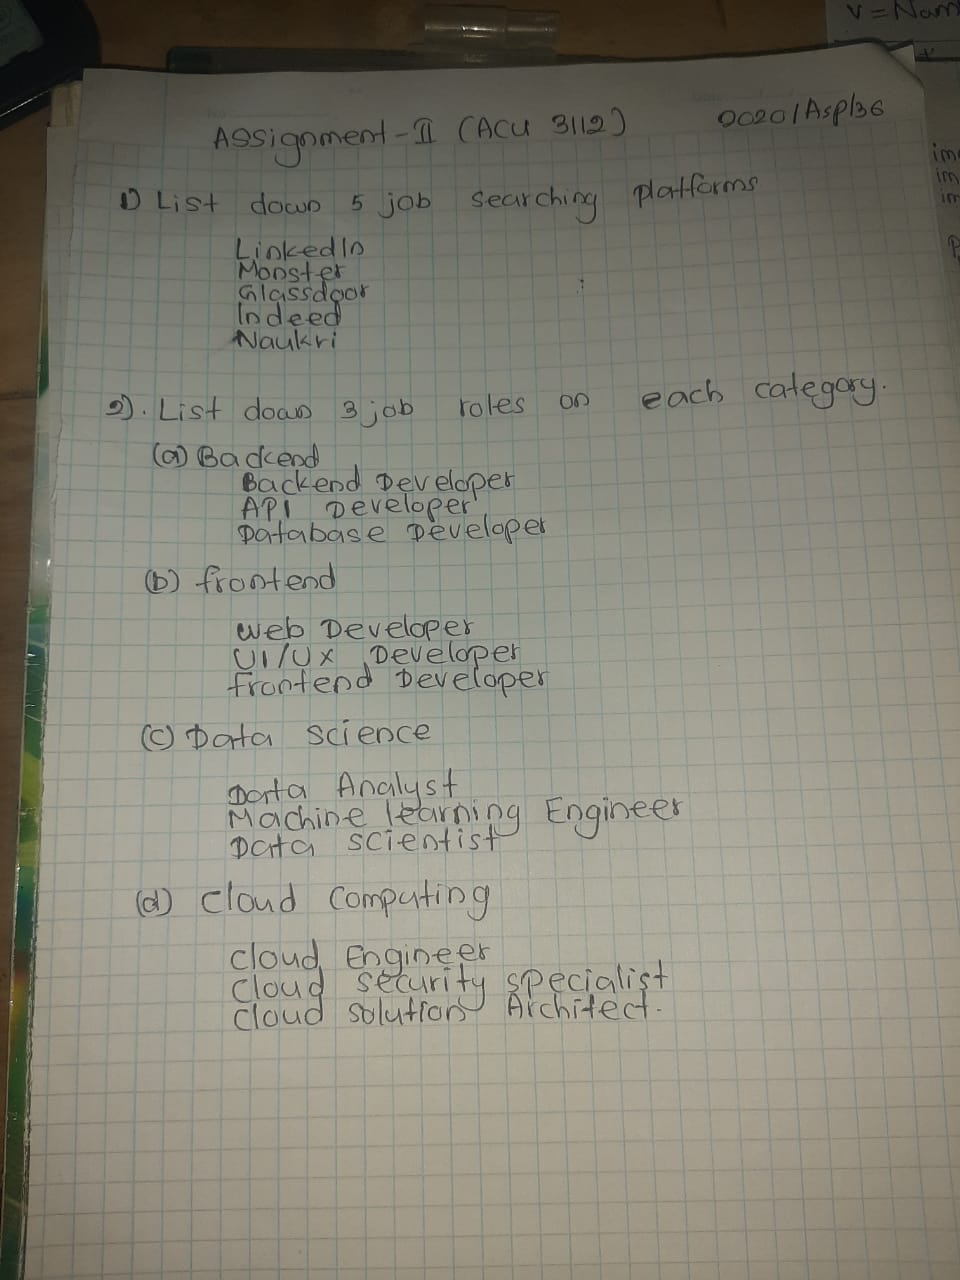 Assignment - II (ACU 3112)
2020/Asp/36
1) List down 5 job searching platforms
LinkedIn
Monster
Glassdoor
Indeed
Naukri
2). List down 3 job roles on each category.
(a) Backend
Backend Developer
API Developer
Database Developer
(b) frontend
Web Developer
UI/UX Developer
frontend Developer
(c) Data science
Data Analyst
Machine learning Engineer
Data scientist
(d) Cloud Computing
Cloud Engineer
Cloud security specialist
Cloud solution Architect.
V = Nam